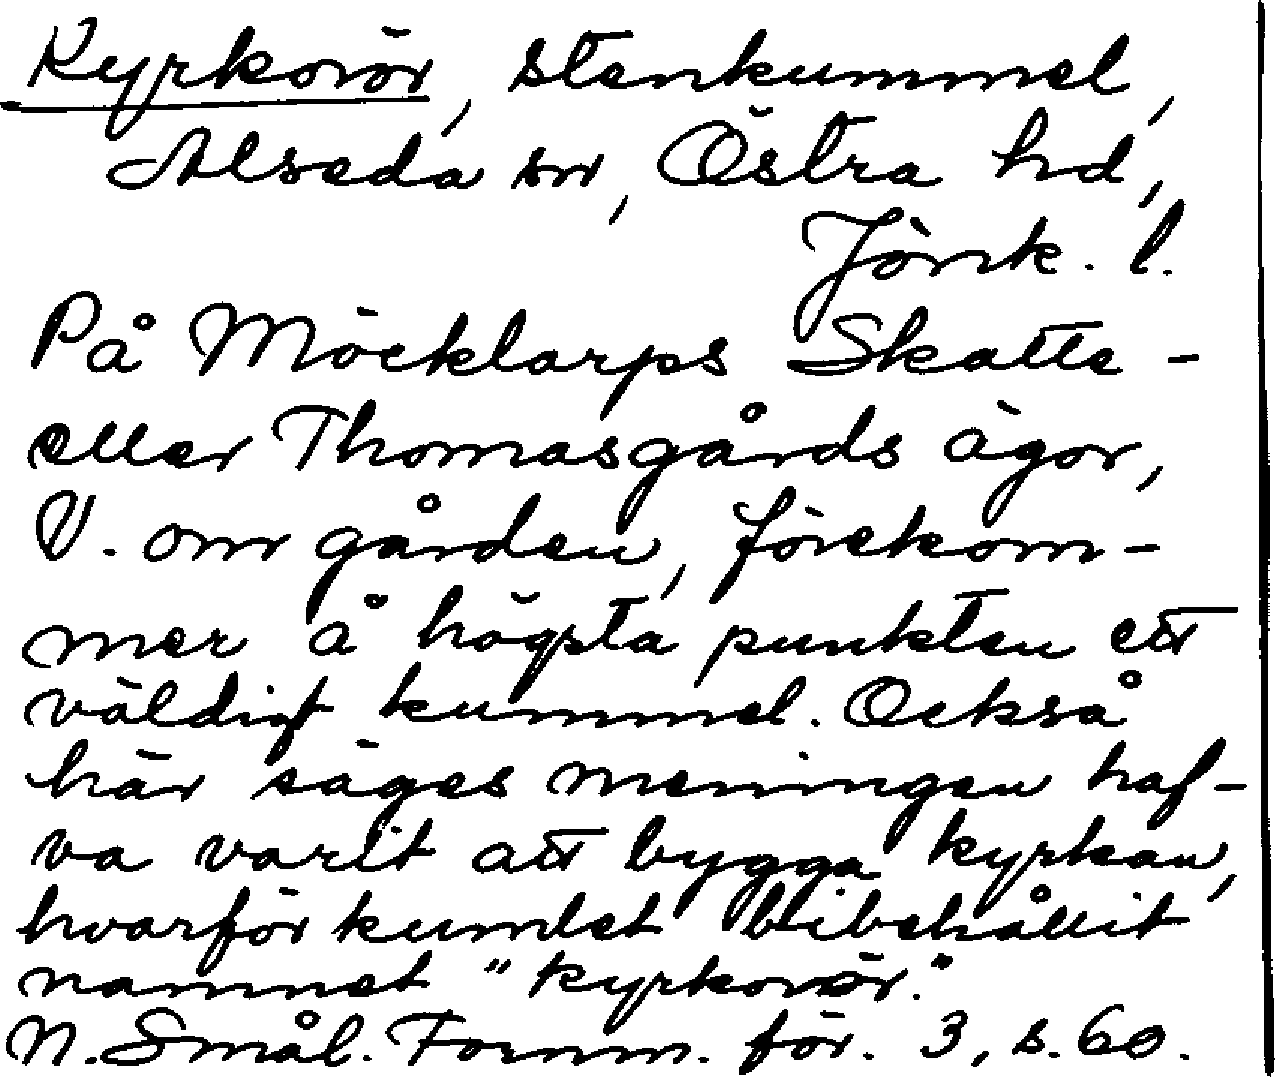 Kyrkorör, stenkummel,
Alseda sn, Östra hd,
Jönk. l.
På Möcklarps Skatte-
eller Thomasgårds ägor,
V. om gården, förekom-
mer å högsta punkten ett
väldigt kummel. Också
här säges meningen haf-
va varit att bygga kyrkan,
hvarför kumlet bibehållit
namnet "kyrkorör."
N. Smål. Fornm. för. 3, s. 60.